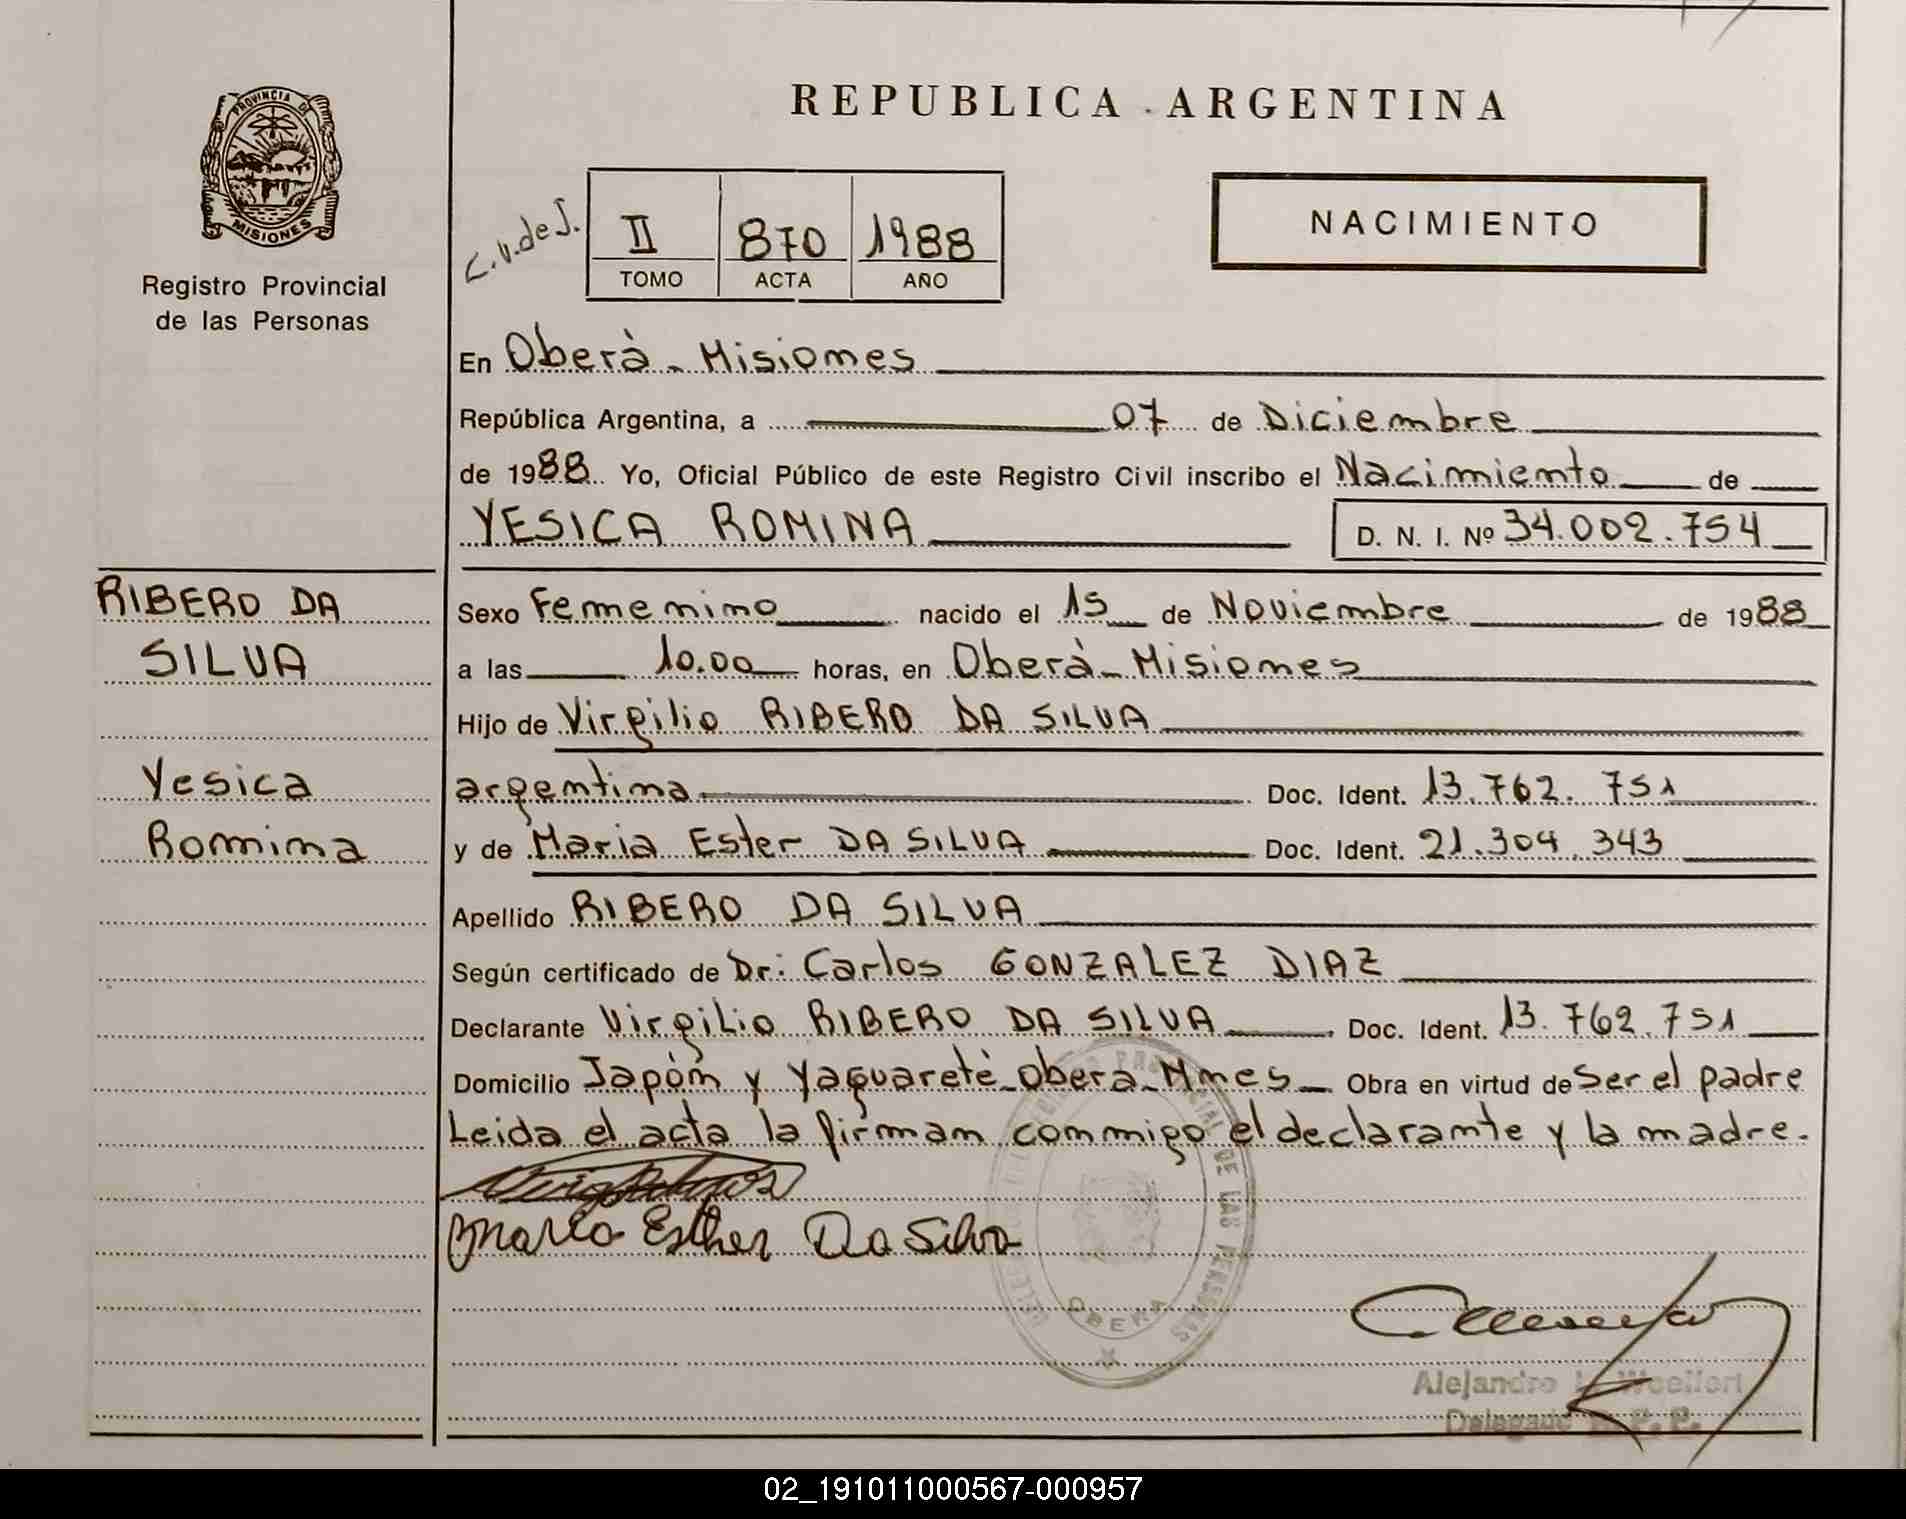 REPUBLICA ARGENTINA
PROVINCIA DE
MISIONES
Registro Provincial
de las Personas
C.N.de J.
II 870 1988
TOMO ACTA AÑO
NACIMIENTO
En Oberà - Misiones
República Argentina, a 07 de Diciembre
de 1988 Yo, Oficial Público de este Registro Civil inscribo el Nacimiento de
YESICA ROMINA D. N. I. Nº 34.002.754
RIBERO DA
SILVA
Yesica
Romina
Sexo Femenino nacido el 15 de Noviembre de 1988
a las 10.00 horas, en Oberà - Misiones
Hijo de Virgilio RIBERO DA SILVA
argentina Doc. Ident. 13.762.751
y de Maria Ester DA SILVA Doc. Ident. 21.304.343
Apellido RIBERO DA SILVA
Según certificado de Dr: Carlos GONZALEZ DIAZ
Declarante Virgilio RIBERO DA SILVA Doc. Ident. 13.762.751
Domicilio Japòn y Yaguaretè - Obera - Mnes Obra en virtud de Ser el padre
Leida el acta la firman conmigo el declarante y la madre.
Maria Esther Da Silva
DE LAS PERSONAS
OBERA
Alejandro
Delegado R. P. P.
02_191011000567-000957